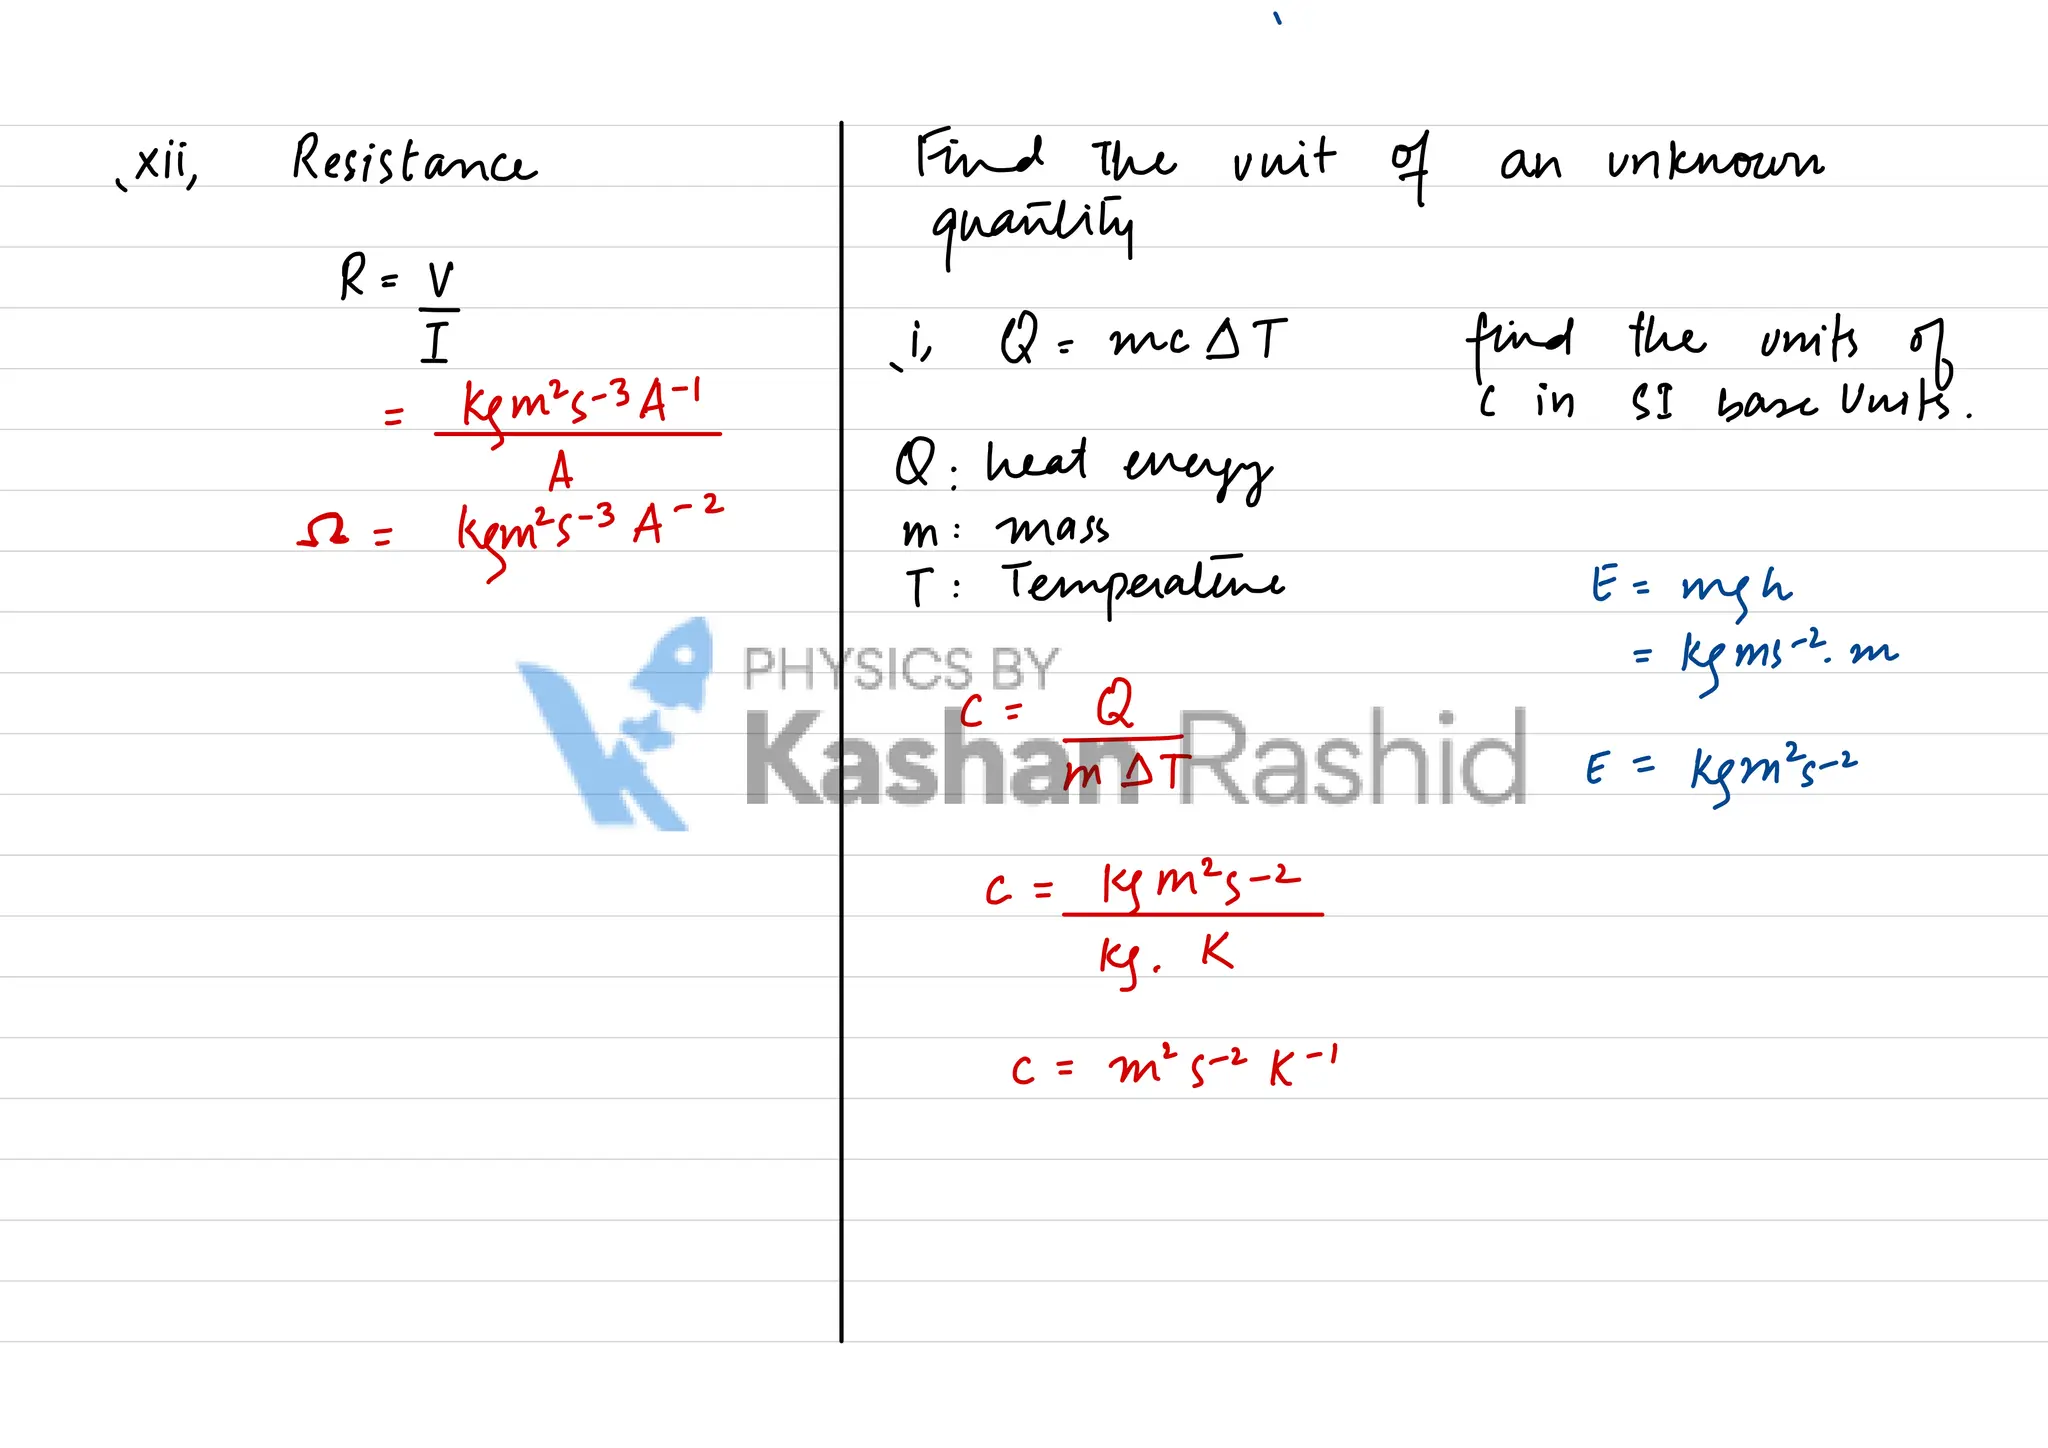 xii, Resistance
R = V
I
= kgm²s-³ A-¹
A
Ω = kgm²s-³ A-²
Find The unit of an unknown
quantity
i, Q = mc ΔT find the units of
c in SI base Units.
Q: heat energy
m: mass
T: Temperature
E = mgh
= kgms-². m
E = kgm²s-²
PHYSICS BY
Kashan Rashid
C = Q
m ΔT
C = kgm²s-²
kg. K
C = m² s-² K-¹